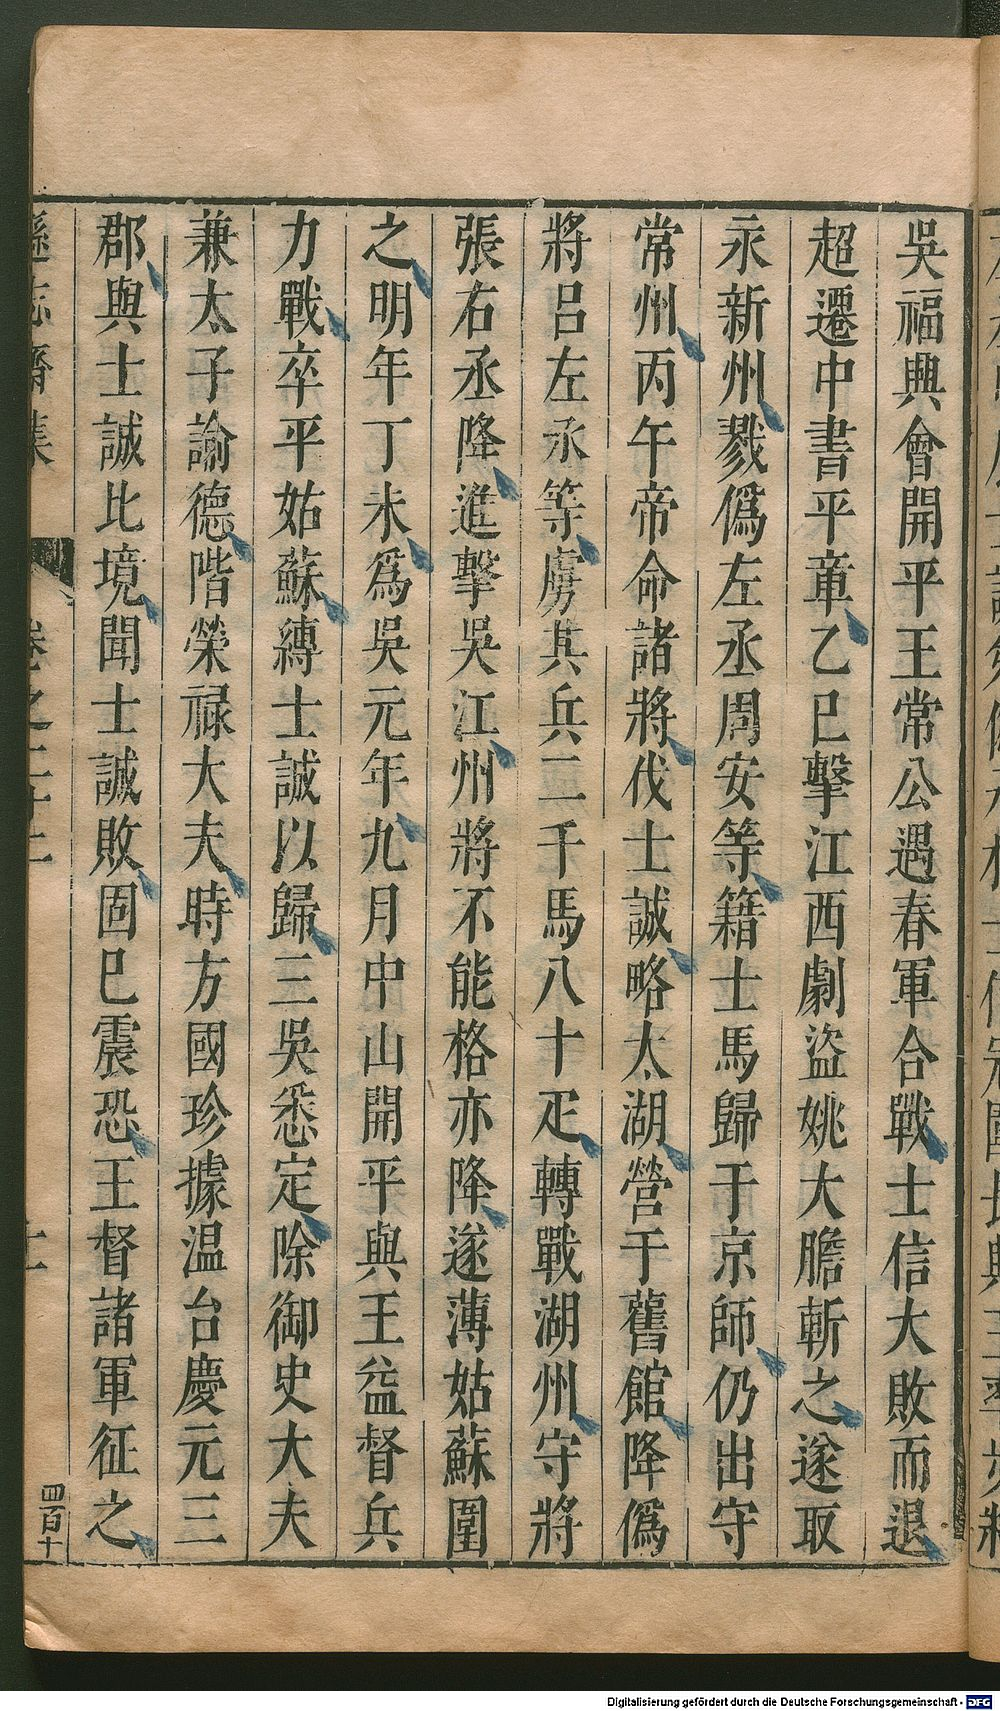 吳福興會開平王常公遇春軍合戰士信大敗而退
超遷中書平章乙巳擊江西劇盜姚大膽斬之遂取
永新州戮僞左丞周安等籍士馬歸于京師仍出守
常州丙午帝命諸將伐士誠略太湖營于舊館降僞
將呂左丞等虜其兵二千馬八十疋轉戰湖州守將
張右丞降進擊吳江州將不能格亦降遂薄姑蘇圍
之明年丁未爲吳元年九月中山開平與王益督兵
力戰卒平姑蘇縛士誠以歸三吳悉定除御史大夫
兼太子諭德階榮祿大夫時方國珍據温台慶元三
郡與士誠比境聞士誠敗固已震恐王督諸軍征之
遜志齋集
卷之二十二
四百十
Digitalisierung gefördert durch die Deutsche Forschungsgemeinschaft - DFG